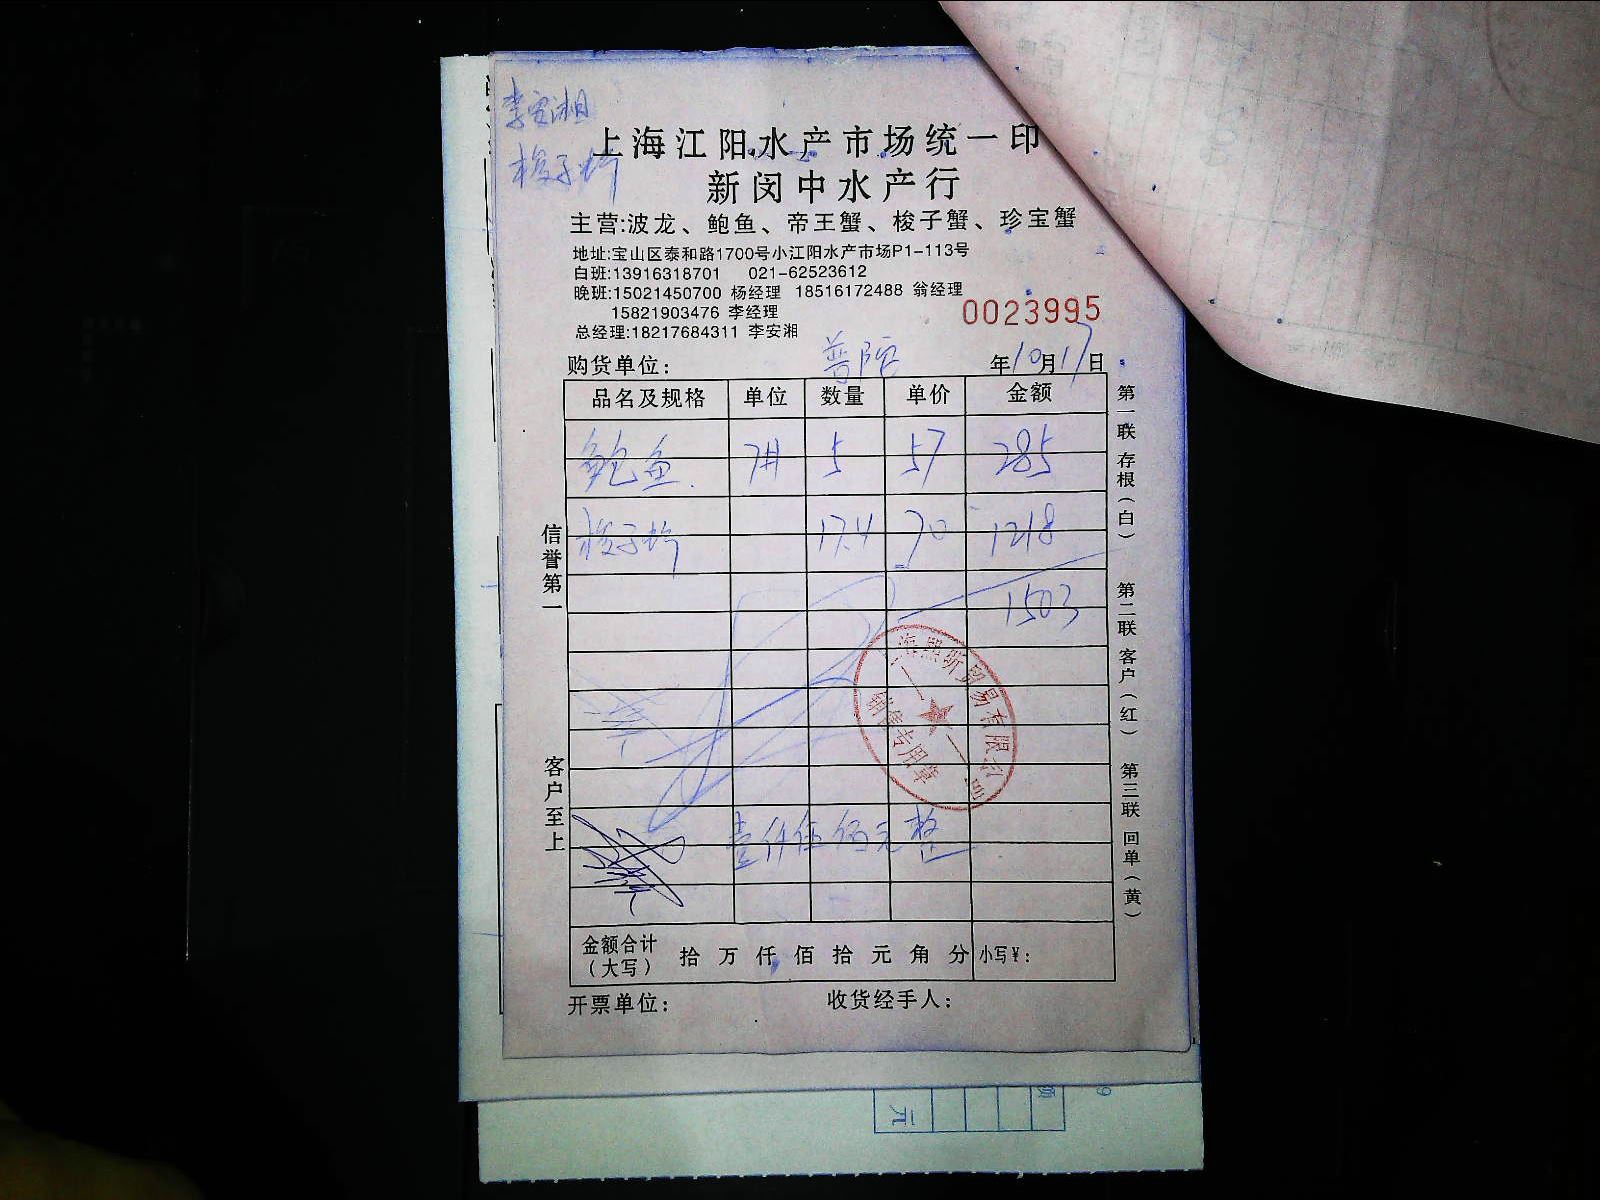 李安湘
梭子蟹
上海江阳水产市场统一印
新闵中水产行
主营:波龙、鲍鱼、帝王蟹、梭子蟹、珍宝蟹
地址:宝山区泰和路1700号小江阳水产市场P1-113号
白班:13916318701 021-62523612
晚班:15021450700 杨经理 18516172488 翁经理
15821903476 李经理
总经理:18217684311 李安湘
0023995
购货单位: 普陀 年10月17日
品名及规格 单位 数量 单价 金额
鲍鱼 5 57 285
梭子蟹 17.4 70 1218
1503
海熙昕贸易有限公司
销售专用章
壹仟伍佰元整
金额合计(大写) 拾 万 仟 佰 拾 元 角 分 小写¥:
开票单位: 收货经手人:
信誉第一
客户至上
第一联 存根(白)
第二联 客户(红)
第三联 回单(黄)
元